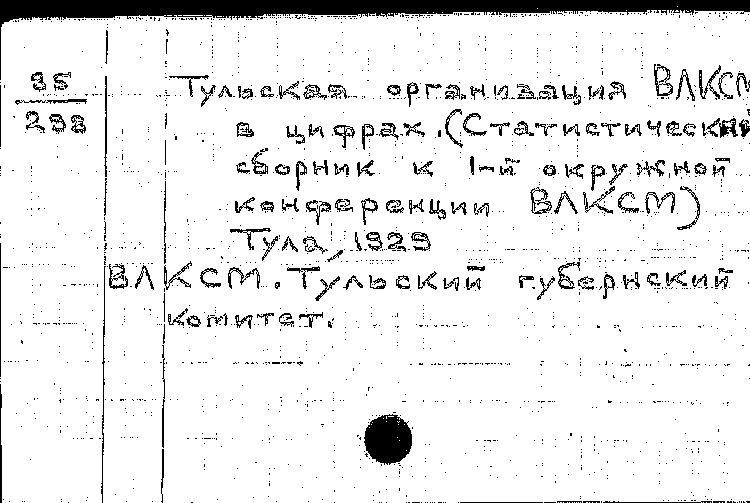 85
298
Тульская организация ВЛКСМ
в цифрах. (Статистический
сборник к 1-й окружной
конференции ВЛКСМ)
Тула, 1929
ВЛКСМ. Тульский губернский
комитет.